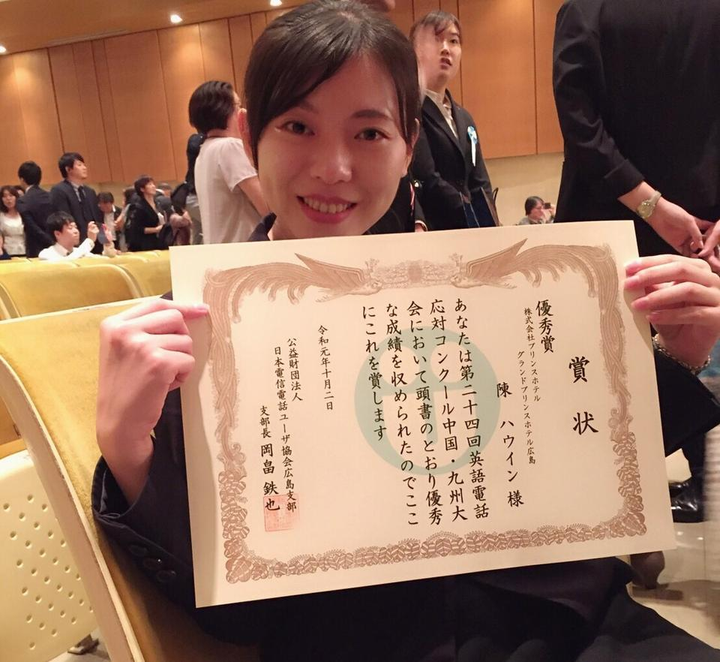 賞状
優秀賞
株式会社プリンスホテル
グランドプリンスホテル広島
陳 ハウイン 様
あなたは第二十四回英語電話
応対コンクール中国・九州大
会において頭書のとおり優秀
な成績を収められたのでここ
にこれを賞します
令和元年十月二日
公益財団法人
日本電信電話ユーザ協会広島支部
支部長 岡畠 鉄也